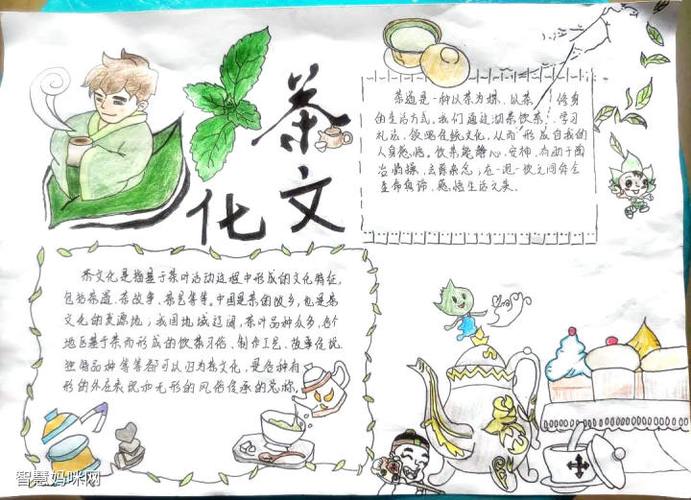 茶文化
茶道是一种以茶为媒、以茶 修身
的生活方式。我们通过沏茶饮茶、学习
礼法、领略传统文化,从而形成自我的
人身感悟。饮茶能静心、安神,有助于陶
冶情操、去除杂念;在一泡一饮之间
生活
茶文化是指基于茶叶活动过程中形成的文化特征,
包括茶道、茶故事、茶 等等。中国是茶的故乡,也是茶
文化的发源地;我国地域辽阔,茶叶品种众多,各个
地区基于茶而形成的饮茶习俗、制作工艺、故事传说
独特品种等等都可以归为茶文化,是各种有
形的外在表现和无形的风俗传承的总称。
智慧妈咪网